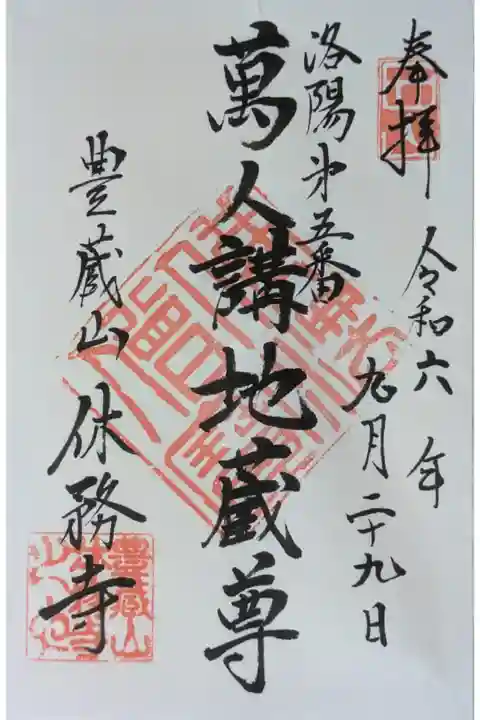 奉拝
令和六年
九月二十九日
洛陽第五番
萬人講地蔵尊
豊蔵山 休務寺